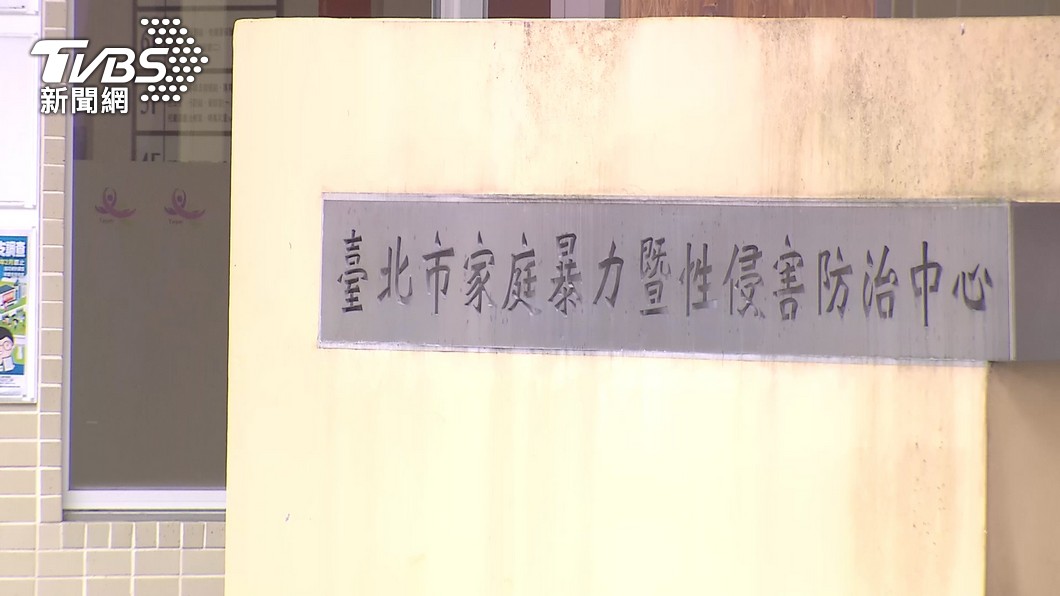 TVBS
新聞網
臺北市家庭暴力暨性侵害防治中心